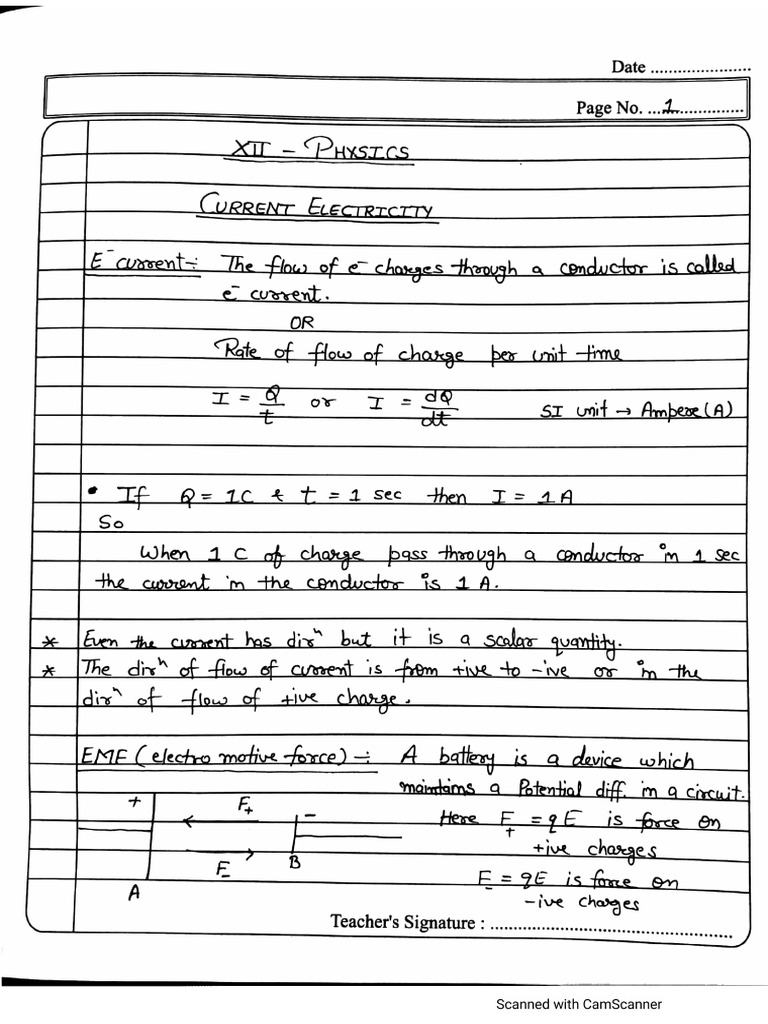 Date ......................
Page No. ...1...............
XII - PHYSICS
CURRENT ELECTRICITY
E⁻ current:- The flow of e⁻ charges through a conductor is called
e⁻ current.
OR
Rate of flow of charge per unit time
I = Q/t or I = dQ/dt SI unit → Ampere (A)
• If Q = 1C & t = 1 sec then I = 1 A
So
When 1 C of charge pass through a conductor in 1 sec
the current in the conductor is 1 A.
* Even the current has dirⁿ but it is a scalar quantity.
* The dirⁿ of flow of current is from +ive to -ive or in the
dirⁿ of flow of +ive charge.
EMF (electro motive force) :- A battery is a device which
maintains a Potential diff. in a circuit.
+ F₊ - Here F₊ = qE is force on
+ive charges
F₋ B
F₋ = qE is force on
A -ive charges
Teacher's Signature : ......................................................
Scanned with CamScanner